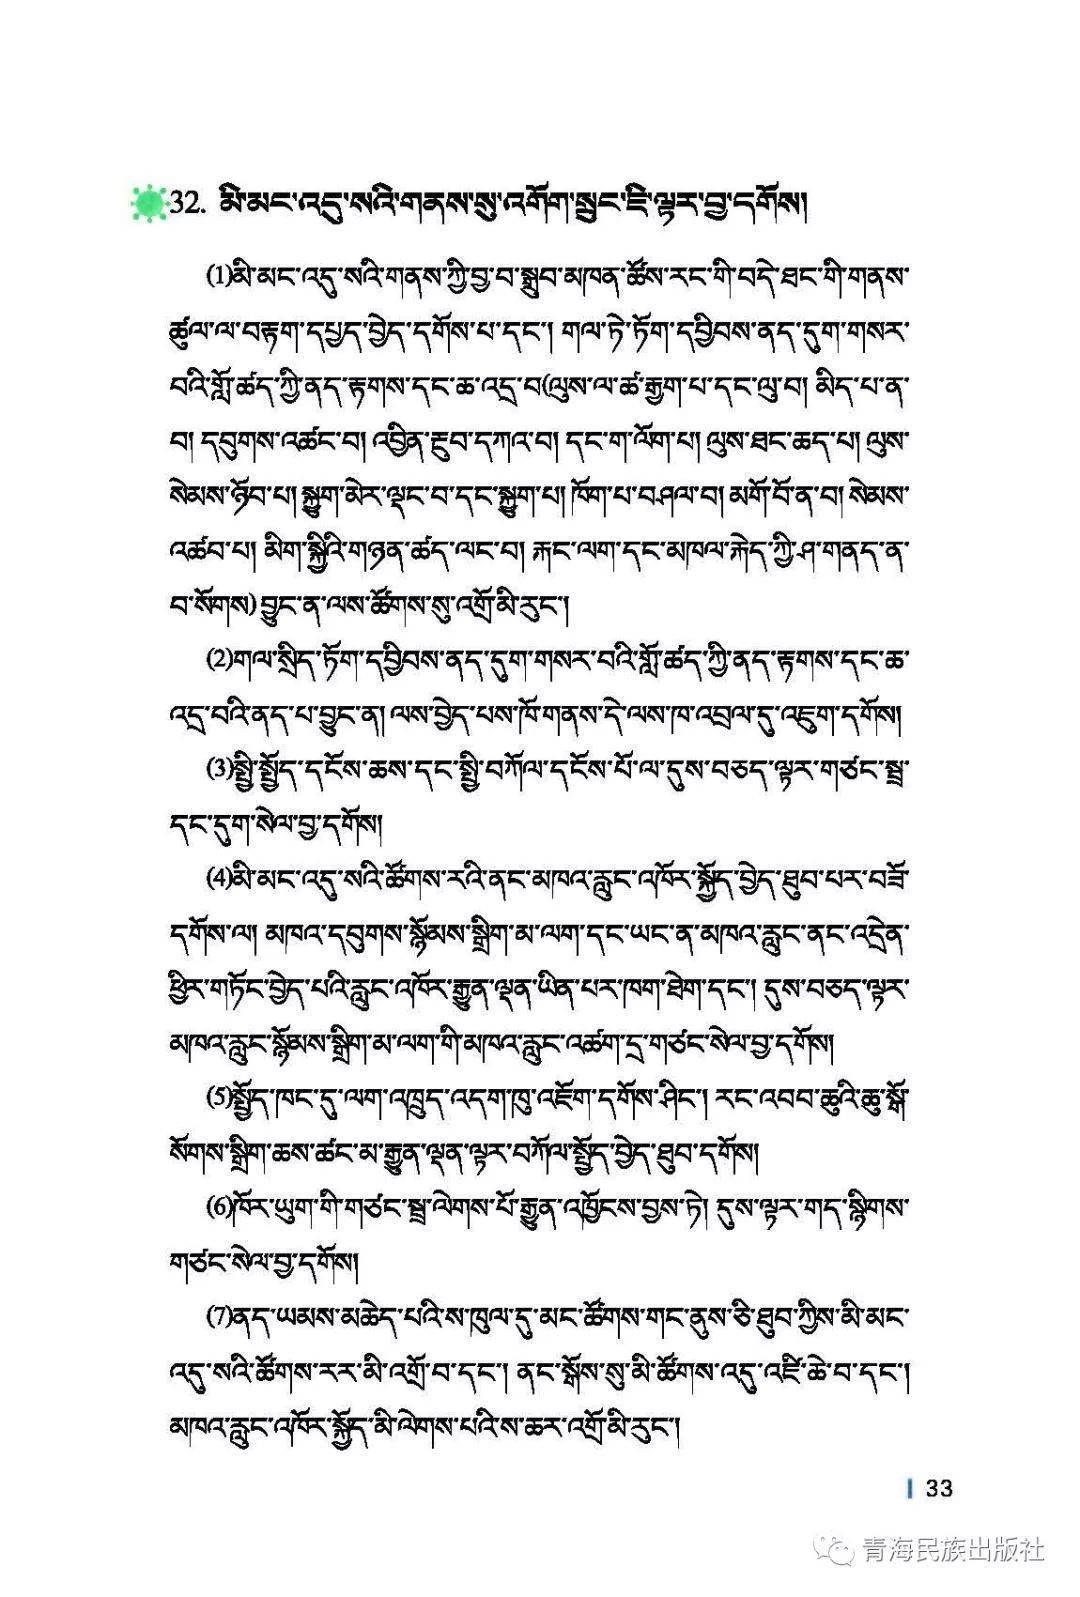 32. མི་མང་འདུ་སའི་གནས་སུ་འགོག་སྲུང་ཇི་ལྟར་བྱ་དགོས།
(1)མི་མང་འདུ་སའི་གནས་ཀྱི་བྱ་བ་སྒྲུབ་མཁན་ཚོས་རང་གི་བདེ་ཐང་གི་གནས་
ཚུལ་ལ་བརྟག་དཔྱད་བྱེད་དགོས་པ་དང་། གལ་ཏེ་ཏོག་དབྱིབས་ནད་དུག་གསར་
བའི་གློ་ཚད་ཀྱི་ནད་རྟགས་དང་ཆ་འདྲ་བ(ལུས་ལ་ཚ་རྒྱག་པ་དང་ལུ་བ། མིད་པ་ན་
བ། དབུགས་འཚང་བ། འབྱིན་རྔུབ་དཀའ་བ། དང་ག་ལོག་པ། ལུས་ཐང་ཆད་པ། ལུས་
སེམས་ཉོབ་པ། སྐྱུག་མེར་ལྡང་བ་དང་སྐྱུག་པ། ཁོག་པ་བཤལ་བ། མགོ་བོ་ན་བ། སེམས་
འཚབ་པ། མིག་སྐྱིའི་གཉན་ཚད་ལང་བ། རྐང་ལག་དང་མཁལ་རྐེད་ཀྱི་ཤ་གནད་ན་
བ་སོགས) བྱུང་ན་ལས་ཚོགས་སུ་འགྲོ་མི་རུང་།
(2)གལ་སྲིད་ཏོག་དབྱིབས་ནད་དུག་གསར་བའི་གློ་ཚད་ཀྱི་ནད་རྟགས་དང་ཆ་
འདྲ་བའི་ནད་པ་བྱུང་ན། ལས་བྱེད་པས་ཁོ་གནས་དེ་ལས་ཁ་འབྲལ་དུ་འཇུག་དགོས།
(3)སྤྱི་སྤྱོད་དངོས་ཆས་དང་སྤྱི་བཀོལ་དངོས་པོ་ལ་དུས་བཅད་ལྟར་གཙང་སྦྲ་
དང་དུག་སེལ་བྱ་དགོས།
(4)མི་མང་འདུ་སའི་ཚོགས་རའི་ནང་མཁའ་རླུང་འཁོར་སྐྱོད་བྱེད་ཐུབ་པར་བཟོ་
དགོས་ལ། མཁའ་དབུགས་སྙོམས་སྒྲིག་མ་ལག་དང་ཡང་ན་མཁའ་རླུང་ནང་འདྲེན་
ཕྱིར་གཏོང་བྱེད་པའི་རླུང་འཁོར་རྒྱུན་ལྡན་ཡིན་པར་ཁག་ཐེག་དང་། དུས་བཅད་ལྟར་
མཁའ་རླུང་སྙོམས་སྒྲིག་མ་ལག་གི་མཁའ་རླུང་འཚག་དྲ་གཙང་སེལ་བྱ་དགོས།
(5)སྤྱོད་ཁང་དུ་ལག་འཁྲུད་འདག་ཁུ་འཇོག་དགོས་ཤིང་། རང་འབབ་ཆུའི་ཆུ་སྒོ་
སོགས་སྒྲིག་ཆས་ཚང་མ་རྒྱུན་ལྡན་ལྟར་བཀོལ་སྤྱོད་བྱེད་ཐུབ་དགོས།
(6)ཁོར་ཡུག་གི་གཙང་སྦྲ་ལེགས་པོ་རྒྱུན་འཁྱོངས་བྱས་ཏེ། དུས་ལྟར་གད་སྙིགས་
གཙང་སེལ་བྱ་དགོས།
(7)ནད་ཡམས་མཆེད་པའི་ས་ཁུལ་དུ་མང་ཚོགས་གང་ནུས་ཅི་ཐུབ་ཀྱིས་མི་མང་
འདུ་སའི་ཚོགས་རར་མི་འགྲོ་བ་དང་། ནང་སྒོས་སུ་མི་ཚོགས་འདུ་འཛོ་ཆེ་བ་དང་།
མཁའ་རླུང་འཁོར་སྐྱོད་མི་ལེགས་པའི་ས་ཆར་འགྲོ་མི་རུང་།
33
青海民族出版社